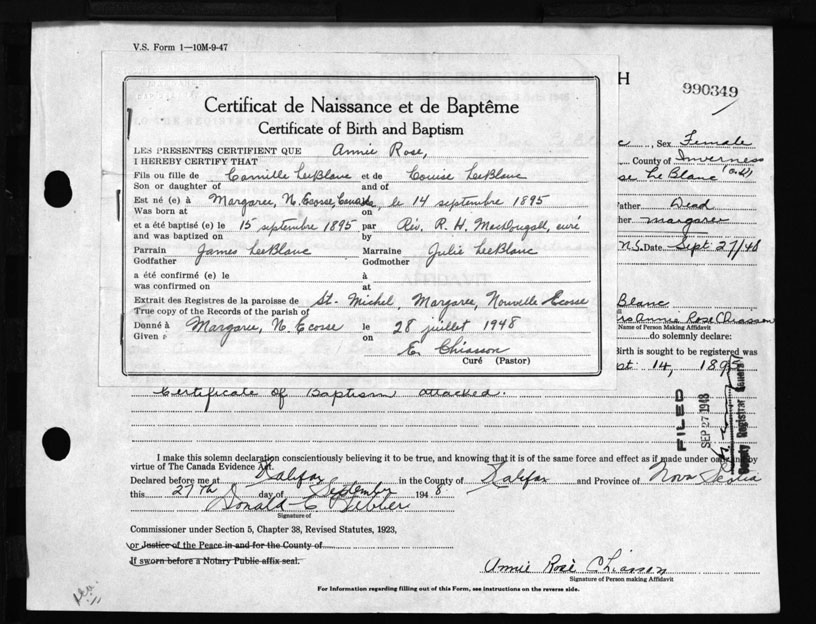 V.S. Form 1—10M-9-47
H
990349
Certificat de Naissance et de Baptême
Certificate of Birth and Baptism
LES PRESENTES CERTIFIENT QUE Annie Rose,
I HEREBY CERTIFY THAT
Fils ou fille de Camille LeBlanc et de Louise LeBlanc
Son or daughter of and of
Est né (e) à Margaree, N. Ecosse, Canada, le 14 septembre 1895
Was born at on
et a été baptisé (e) le 15 septembre 1895 par Rév. R. H. MacDougall, curé
and was baptized on by
Parrain James LeBlanc Marraine Julie LeBlanc
Godfather Godmother
a été confirmé (e) le à
was confirmed on at
Extrait des Registres de la paroisse de St. Michel, Margaree, Nouvelle Ecosse
True copy of the Records of the parish of
Donné à Margaree, N. Ecosse le 28 juillet 1948
Given on
E. Chiasson
Curé (Pastor)
c, Sex Female
County of Inverness
se Le Blanc
Father Dead
her Margaree
N.S. Date Sept 27/48
Blanc
rs Annie Rose Chiasson
Name of Person Making Affidavit
do solemnly declare:
Birth is sought to be registered was
pt. 14, 1895
FILED
SEP 27 1948
Deputy Registrar General
Certificate of Baptism attached.
I make this solemn declaration conscientiously believing it to be true, and knowing that it is of the same force and effect as if made under oath by
virtue of The Canada Evidence Act.
Declared before me at Halifax in the County of Halifax and Province of Nova Scotia
this 27th day of September 1948.
Donald C
Signature of
Commissioner under Section 5, Chapter 38, Revised Statutes, 1923,
or Justice of the Peace in and for the County of
If sworn before a Notary Public affix seal.
Annie Rose Chiasson
Signature of Person making Affidavit
For Information regarding filling out of this Form, see instructions on the reverse side.